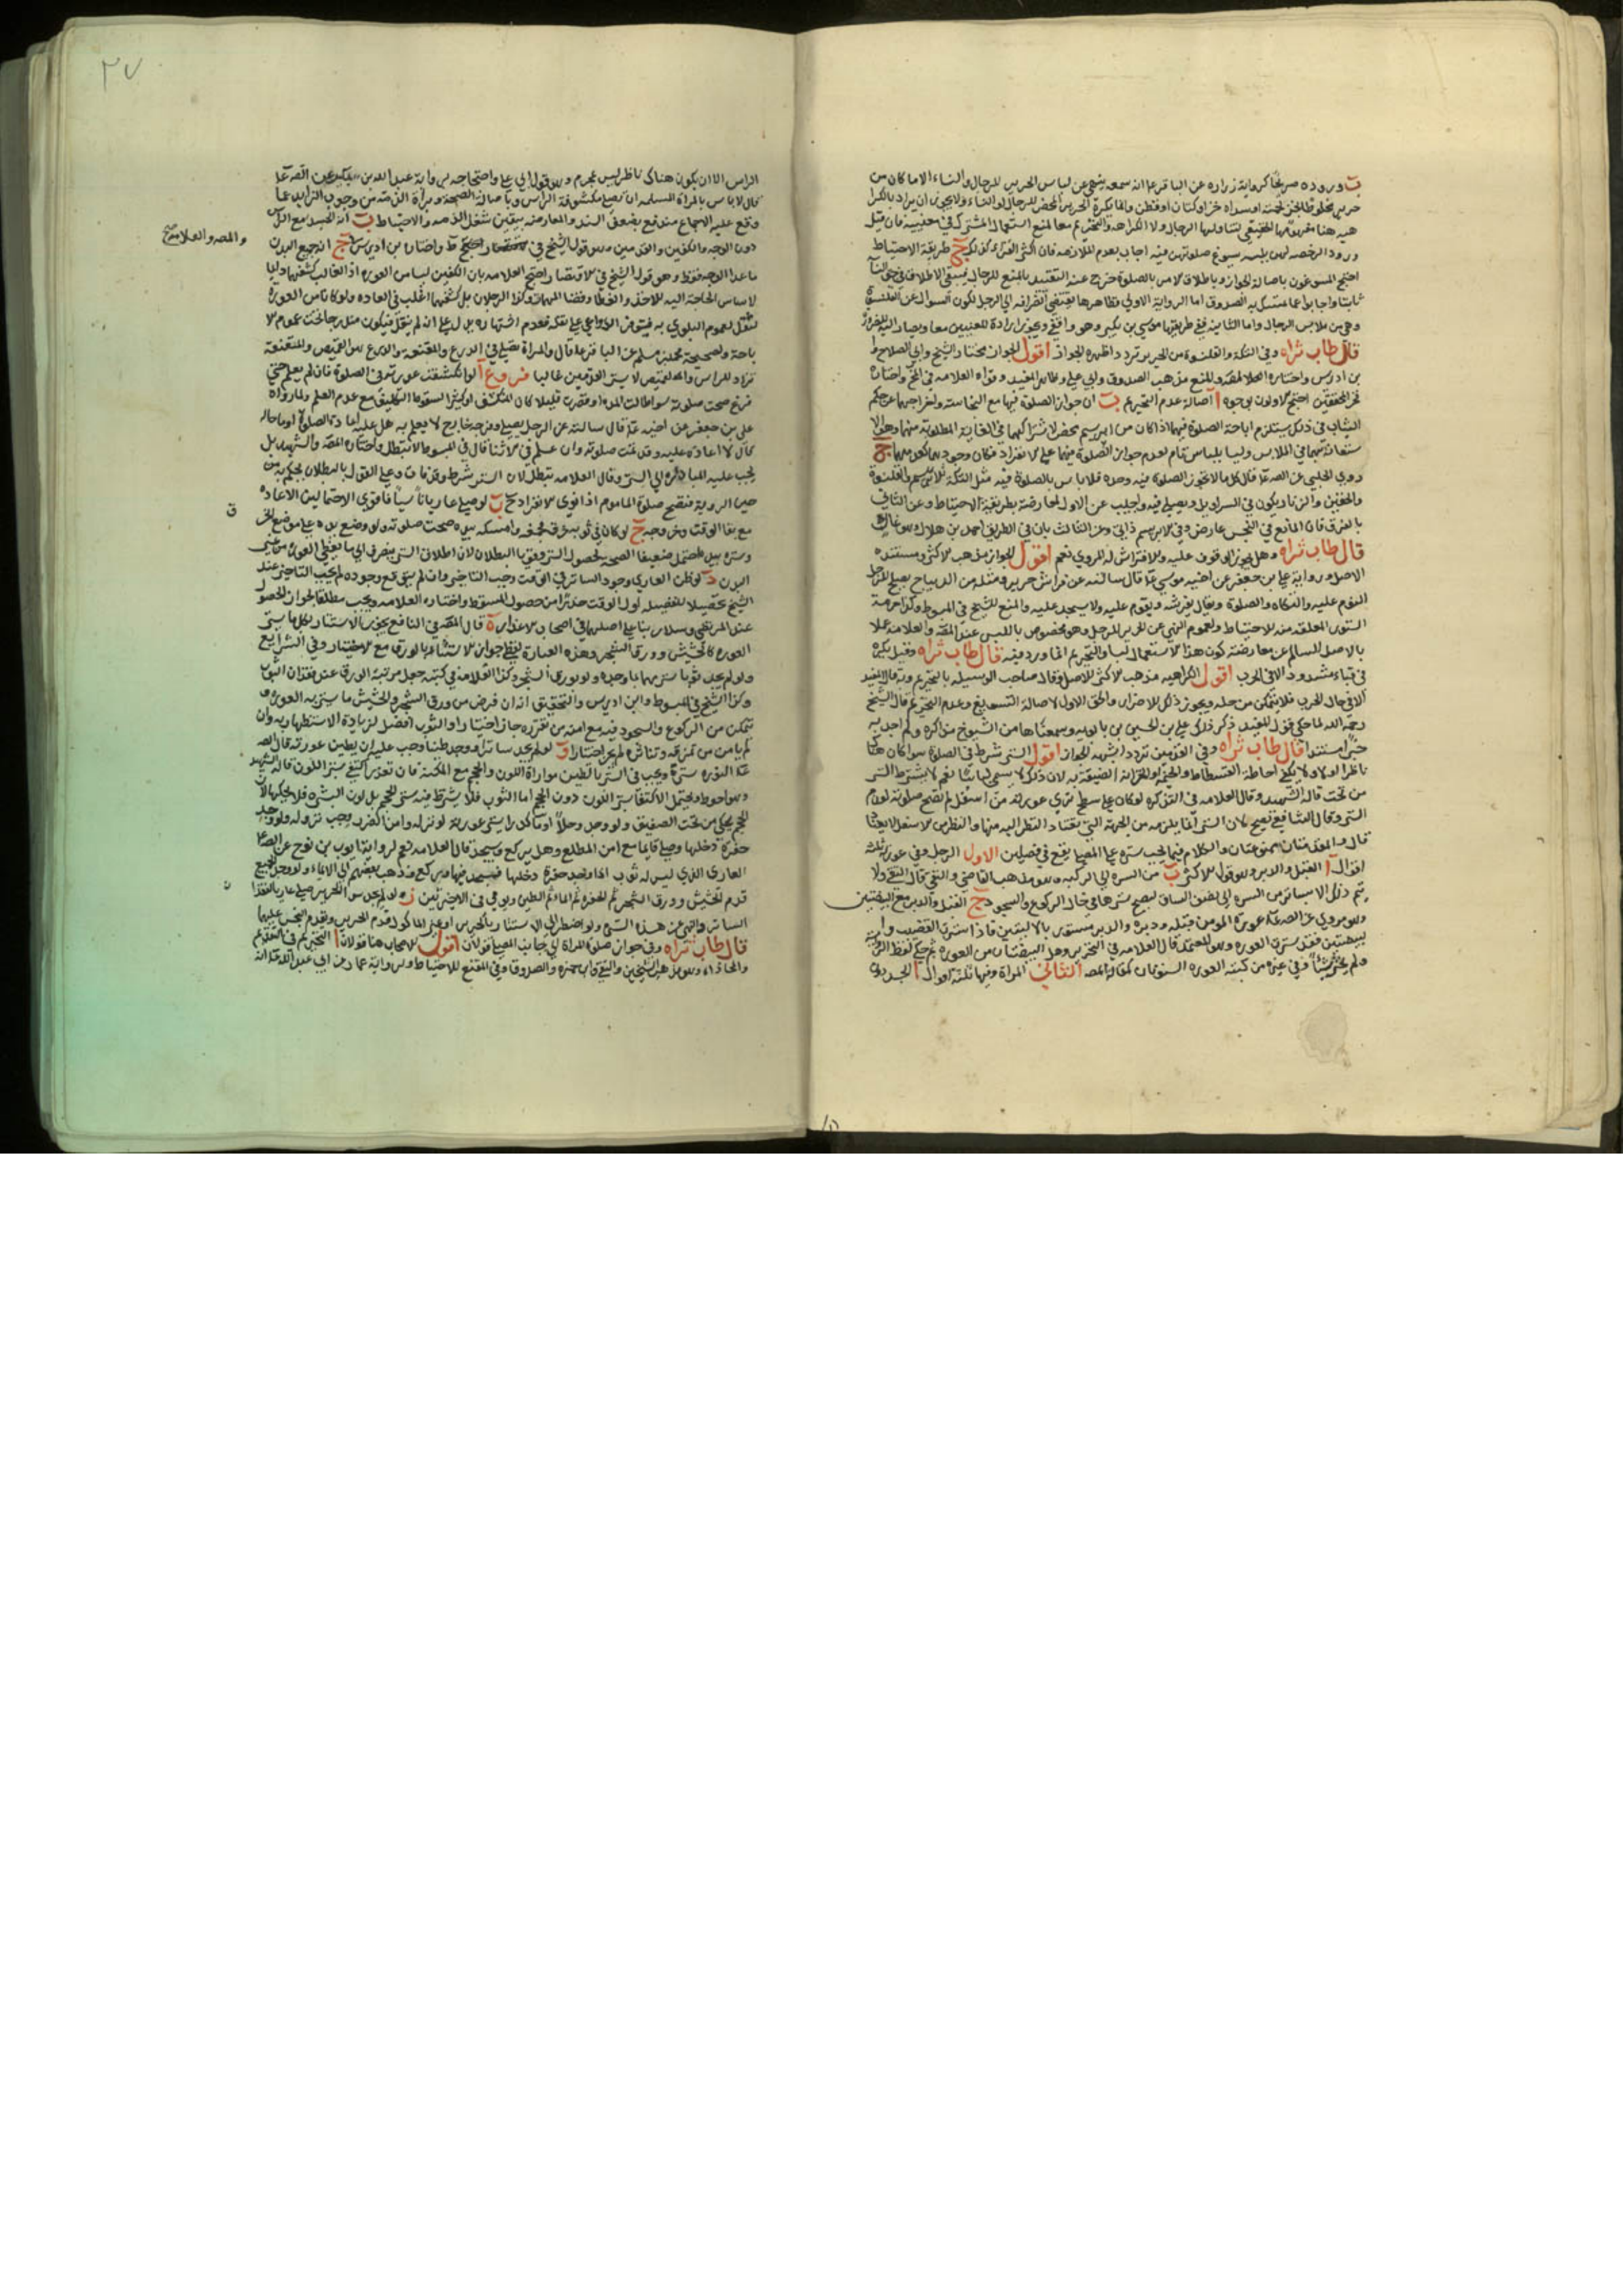 ب وروده صريحا كرواية زراره عن الباقر ع انه سمعه ينهى عن لباس الحرير للرجال والنساء الا ما كان من
حرير مخلوط بالخز لحمته او سداه خز او كتان او قطن وانما يكره الحرير المحض للرجال والنساء ولا يجوز ان يراد بالكرا
هية هنا
ورود الرخصة لهن بلبسه يسوغ صلوتهن فيه اجاب بعدم الملازمة فان اكثر القراء كذلك ج طريقة الاحتياط
احتج المسوغون باصالة الجواز وباطلاق الامر بالصلوة خرج عنه التقييد بالمنع للرجال فيبقى الاطلاق في
ثابتا واجابوا عما تمسك به الصدوق اما الرواية الاولى فظاهرها يقتضي انصرافه الى الرجل لكون السوال عن القلنسوة
وهي من ملابس الرجال واما الثانية ففي طريقها موسى بن بكير وهو واقفي
قال طاب ثراه وفي التكة والقلنسوة من الحرير تردد اظهره الجواز اقول الجواز مختار الشيخ وابي الصلاح
بن ادريس واختاره العلامة والمنع مذهب الصدوق وابي علي وظاهر المفيد وقواه العلامة في واختاره
فخر المحققين احتج الاولون بوجوه ا اصالة عدم التحريم ب ان جواز الصلوة فيهما مع النجاسة
الثياب في ذلك يستلزم اباحة الصلوة فيهما اذا كان من ابريسم محض لاشتراكهما في الغاية المطلوبة منهما وهو
ستعانة بهما في الملابس وليسا بلباس تام لعدم جواز الصلوة فيهما على الانفراد فكان وجودهما كعدمهما ج
روى الحلبي عن الصادق ع قال كل ما لا تجوز الصلوة فيه وحده فلا باس بالصلوة فيه مثل التكة الابريسم والقلنسوة
والخفين والزنار يكون في السراويل ويصلى فيه واجيب عن الاول بمعارضته بطريقة الاحتياط وعن الثاني
بالفرق فان المانع في النجس عارض وفي الابريسم ذاتي وعن الثالث بان في الطريق احمد بن هلال وهو غال
قال طاب ثراه وهل يجوز الوقوف عليه والافتراش له المروي نعم اقول الجواز مذهب الاكثر ومستنده
الاصل ورواية علي بن جعفر عن اخيه موسى ع قال سالته عن فراش حرير ومثله من الديباج يصلح للرجل
النوم عليه والتكاه والصلوة وقال يفرشه ويقوم عليه ولا يسجد عليه والمنع للشيخ في المبسوط وكذا حرمة
الستور المعلقة منه للاحتياط ولعموم النهي عن الحرير للرجل وهو مخصوص باللبس عند المصنف والعلامة عملا
بالاصل السالم عن معارضة كون هذا الاستعمال لبسا والتحريم انما ورد فيه قال طاب ثراه وقيل يكره
في قباء مشدود الا في الحرب اقول الكراهية مذهب الاكثر للاصل وقال صاحب الوسيلة بالتحريم وبه قال المفيد
الا في حال الحرب فلا يتمكن من حله ويجوز ذلك للاضرار والحق الاول لاصالة التسويغ وعدم التحريم قال الشيخ
رحمه الله لما حكى قول المفيد ذكر ذلك علي بن الحسين بن بابويه وسمعناها من الشيوخ مذاكرة ولم اجد به
خبرا مستندا قال طاب ثراه وفي القدمين تردد اشبهه الجواز اقول الستر شرط في الصلوة سوا كان هنا
ناظر او لا ولا يكفي احاطة الفسطاط والخيمة او الخزانة الضيقة به لان ذلك لا يسمى لباسا نعم لا يشترط الستر
من تحت قاله الشهيد وقال العلامة في التذكرة لو كان على سطح ترى عورته من اسفل لم تصح صلوته لعدم
الستر وقال الشافعي تصح لان الستر انما يلزمه من الجهة التي يعتاد النظر اليه منها والنظر من الاسفل لا يعتاد
قال والمقدمتان ممنوعتان والكلام فيما يجب ستره على المصلي يقع في فصلين الاول الرجل وفي عورته ثلثة
اقوال ا القبل والدبر وهو قول الاكثر ب من السره الى الركبة وهو مذهب القاضي والتقي قال التقي ولا
يتم ذلك الا بساتر من السره الى نصف الساق ليصح سترها في حال الركوع والسجود ج القبل والدبر مع البيضتين
وهو مروي عن الصادق ع عورة المومن قبله ودبره والدبر مستور بالاليتين فاذا سترت القضيب والبـ
ـيضتين فقد سترت العوره وهو المعتمد قال العلامة في التحرير وهل البيضتان من العورة
ولم يختر شيئا وفي غيره من كتبه العورة السوءتان كمقالة المصنف الثاني المراة وفيها ثلثة اقوال ا الجسد دون
٣٧
الراس الا ان يكون هناك ناظر ليس بمحرم وهو قول ابي علي واحتجاجه برواية عبد الله بن بكير عن الصادق ع
قال لا باس بالمراة المسلمة ان تصلي مكشوفة الراس وباصالة الصحة وبراة الذمة من وجوب الزايد عما
وقع عليه الاجماع مندفع بضعف السند والمعارضة بيقين شغل الذمة والاحتياط ب انه الجسد مع الراس
دون الوجه والكفين والقدمين وهو قول الشيخ في واختيار بن ادريس ج انه جميع البدن
والمصنف والعلامة صح
ما عدا الوجه فقط وهو قول الشيخ في الاقتصار احتج العلامة بان الكفين ليسا من العورة اذ الغالب كشفهما دايما
لامساس الحاجة اليه للاخذ والعطا وقضا المهمات وكذا الرجلان بل كشفهما اغلب في العادة ولو كانا من العورة
لنقل لعموم البلوى به فيتوفر الدواعي على نقله فعدم اشتهاره يدل على انه لم ينقل فيكون
باحة ولصحيحة محمد بن مسلم عن الباقر ع قال والمراة تصلي في الدرع والمقنعة والدرع هو القميص والمقنعة
تزاد للراس والقميص لا يستر القدمين غالبا فروع ا لو انكشفت عورته في الصلوة فان لم يعلم حتى
فرغ صحت صلوته سوا طالت المدة او قصرت قليلا كان الكشف او كثيرا لسقوط التكليف مع عدم العلم ولما رواه
علي بن جعفر عن اخيه ع قال سالته عن الرجل يصلي وفرجه خارج لا يعلم به هل عليه اعادة الصلوة او ما حاله
قال لا اعادة عليه وقد تمت صلوته وان علم في الاثنا قال في المبسوط لا تبطل واختاره المصنف والشهيد بل
يجب عليه المبادرة الى الستر وقال العلامة تبطل لان الستر شرط وقد فات وعلى القول بالبطلان يحكم به من
حين الروية فتصح صلوة الماموم اذا نوى الانفراد ح ب لو صلى عاريا ناسيا فاقوى الاحتمالين الاعادة
ق
مع بقا الوقت وخروجه ج لو كان في ثوبه خرق فجمعه وامسكه بيده صحت صلوته ولو وضع يده على موضع الخرق
وستره بيده احتمل ضعيفا الصحة لحصول الستر وقوي البطلان لان اطلاق الستر ينصرف الى ما يغطي العورة من غير
البدن د لو ظن العاري وجود الساتر في الوقت وجب التاخير وان لم يتوقع وجوده لم يجب التاخير عند
الشيخ تحصيلا لفضيلة اول الوقت حذرا من حصول المسقط واختاره العلامة ويجب مطلقا لجواز الحصول
عند المرتضى وسلار بنا على اصلهما في اصحاب الاعذار ه قال المصنف في النافع يجوز الاستتار بكل ما يستر
العورة كالحشيش وورق الشجر وهذه العبارة يعطي جواز الاستتار بالورق مع الاختيار وفي الشرايع
ولو لم يجد ثوبا سترهما بما وجده ولو بورق الشجر وكذا العلامة في كتبه جعل مرتبة الورق عند فقدان الثوب
وكذا الشيخ في المبسوط وابن ادريس والتحقيق انه ان فرض من ورق الشجر والحشيش ما يستر به العورة و
يتمكن من الركوع والسجود فيه مع امنه من تقرره جاز اختيارا والثوب افضل لزيادة الاستظهار به وان
لم يامن من تمزقه وتناثره لم يجز اختيارا و لو لم يجد ساترا ووجد طينا وجب عليه ان يطين عورته قال الصادق
ع النورة سترة ويجب في الستر بالطين مواراة اللون والحجم مع المكنة فان تعذرا اكتفي بستر اللون قاله الشهيد
وهو احوط ويحتمل الاكتفا بستر اللون دون الحجم اما الثوب فلا يشترط فيه ستر الحجم بل لون البشره
الحجم يحكى من تحت الصفيق ولو وجد وحلا او ماء كدرا يستر عورته لو نزله وامن الضرر وجب نزوله ولو وجد
حفرة دخلها وصلى قايما مع امن المطلع وهل يركع ويسجد قال العلامة نعم لرواية ايوب بن نوح عن الصادق ع
العاري الذي ليس له ثوب اذا وجد حفرة دخلها فيسجد فيها ويركع وذهب بعضهم الى الايماء ولو وجد الجميع
قدم الحشيش وورق الشجر ثم الحفره ثم الماء ثم الطين ويومي في الاخيرتين ز ولو لم يجد سوى الحرير صلى عاريا لفقد
الساتر والنهي عن هذا الستر ولو اضطر الى الاستتار بالحرير او غير الماكول قدم الحرير ويقدم النجس عليهما
قال طاب ثراه وفي جواز صلوة المراة الى جانب المصلي قولان اقول للاصحاب هنا قولان ا التحريم في التقدم
والمحاذاة وهو مذهب الشيخين والتقي وابن حمزة والصدوق في المقنع للاحتياط ورواية عمار عن ابي عبد الله ع انه